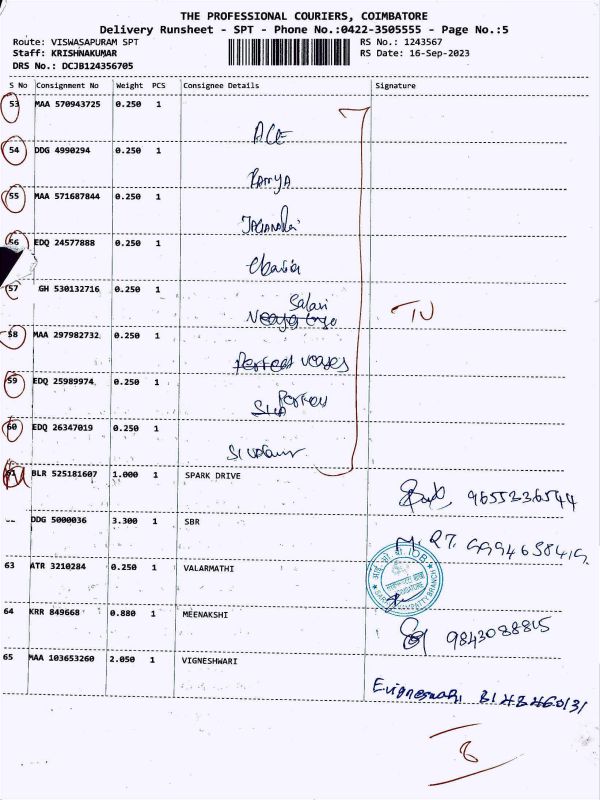 THE PROFESSIONAL COURIERS, COIMBATORE
Delivery Runsheet - SPT - Phone No.:0422-3505555 - Page No.:5
Route: VISWASAPURAM SPT RS No.: 1243567
Staff: KRISHNAKUMAR RS Date: 16-Sep-2023
DRS No.: DCJB124356705
S No Consignment No Weight PCS Consignee Details Signature
53 MAA 570943725 0.250 1
ACE
54 DDG 4990294 0.250 1
RAMYA
55 MAA 571687844 0.250 1
56 EDQ 24577888 0.250 1
57 GH 530132716 0.250 1
Salai
TU
58 MAA 297982732 0.250 1
Perfect
59 EDQ 25989974 0.250 1
60 EDQ 26347019 0.250 1
BLR 525181607 1.000 1 SPARK DRIVE
9655236544
DDG 5000036 3.300 1 SBR
63 ATR 3210284 0.250 1 VALARMATHI
64 KRR 849668 0.880 1 MEENAKSHI
9843088815
65 MAA 103653260 2.050 1 VIGNESHWARI
8